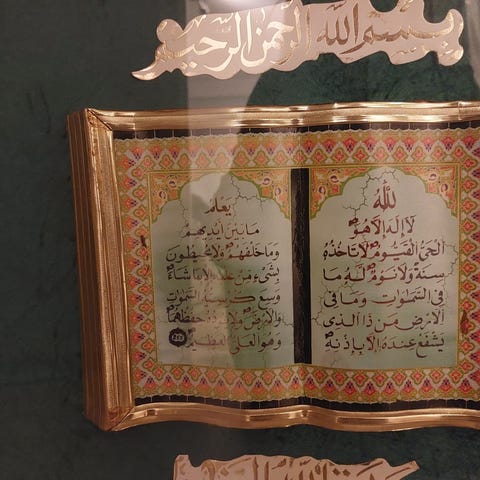 بِسْمِ اللّٰهِ الرَّحْمٰنِ الرَّحِيْمِ
اَللّٰهُ
لَآ اِلٰهَ اِلَّا هُوَۚ
اَلْحَىُّ الْقَيُّومُۚ لَا تَاْخُذُهُ
سِنَةٌ وَلَا نَوْمٌۜ لَهُ مَا
فِى السَّمٰوَاتِ وَمَا فِى
الْاَرْضِۜ مَنْ ذَا الَّذِى
يَشْفَعُ عِنْدَهُٓ اِلَّا بِاِذْنِهۜ
يَعْلَمُ
مَا بَيْنَ اَيْدِيهِمْ
وَمَا خَلْفَهُمْۚ وَلَا يُحِيطُونَ
بِشَىْءٍ مِنْ عِلْمِهٓ اِلَّا بِمَا شَآءَۚ
وَسِعَ كُرْسِيُّهُ السَّمٰوَاتِ
وَالْاَرْضَۚ وَلَا يَؤُدُهُ حِفْظُهُمَاۚ
وَهُوَ الْعَلِىُّ الْعَظِيمُ